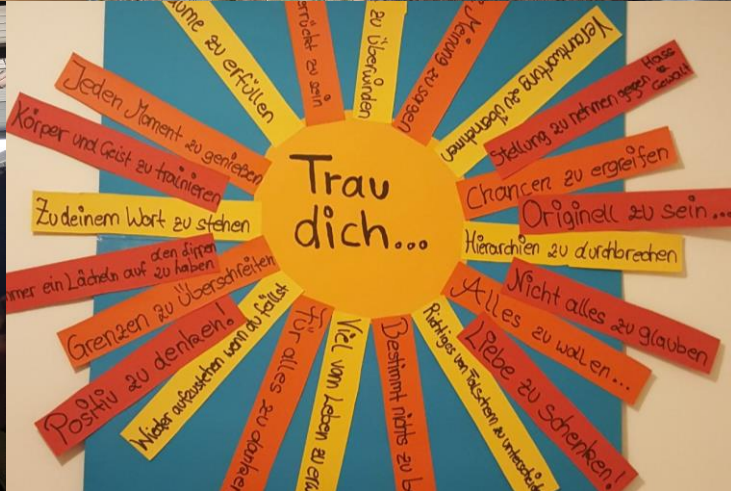 Trau
dich...
ume zu erfüllen
rrückt zu sein
zu überwinden
Meinung zu sagen
Verantwortung zu übernehmen
Stellung zu nehmen gegen Hass
& Gewalt
Chancen zu ergreifen
Originell zu sein...
Hierarchien zu durchbrechen
Nicht alles zu glauben
Alles zu wollen...
Liebe zu schenken!
Richtiges von Falschem zu unterscheid
Bestimmt nichts zu b
Viel vom Leben zu erw
für alles zu danken
Wieder aufzustehen wenn du fällst
Positiv zu denken!
Grenzen zu Überschreiten
mmer ein Lächeln auf den Lippen
zu haben
Zu deinem Wort zu stehen
Körper und Geist zu trainieren
Jeden Moment zu genießen